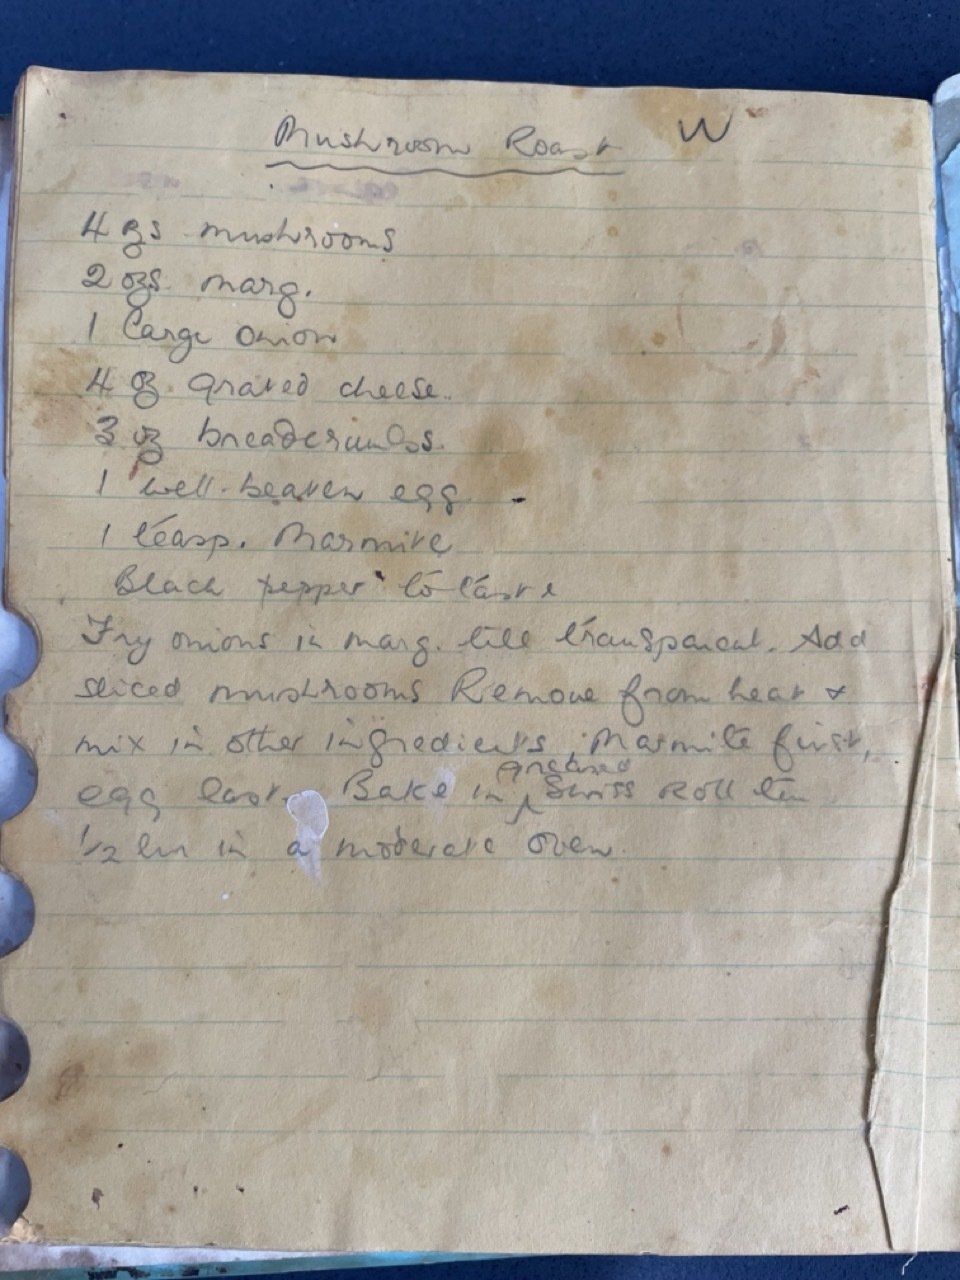 Mushroom Roast W
4 ozs mushrooms
2 ozs. marg.
1 large onion
4 oz. grated cheese.
3 oz breadcrumbs.
1 well-beaten egg
1 teasp. Marmite
Black pepper to taste
Fry onions in marg. till transparent. Add
sliced mushrooms Remove from heat &
mix in other ingredients, Marmite first,
greased
egg last. Bake in Swiss Roll tin
1/2 hr in a moderate oven.